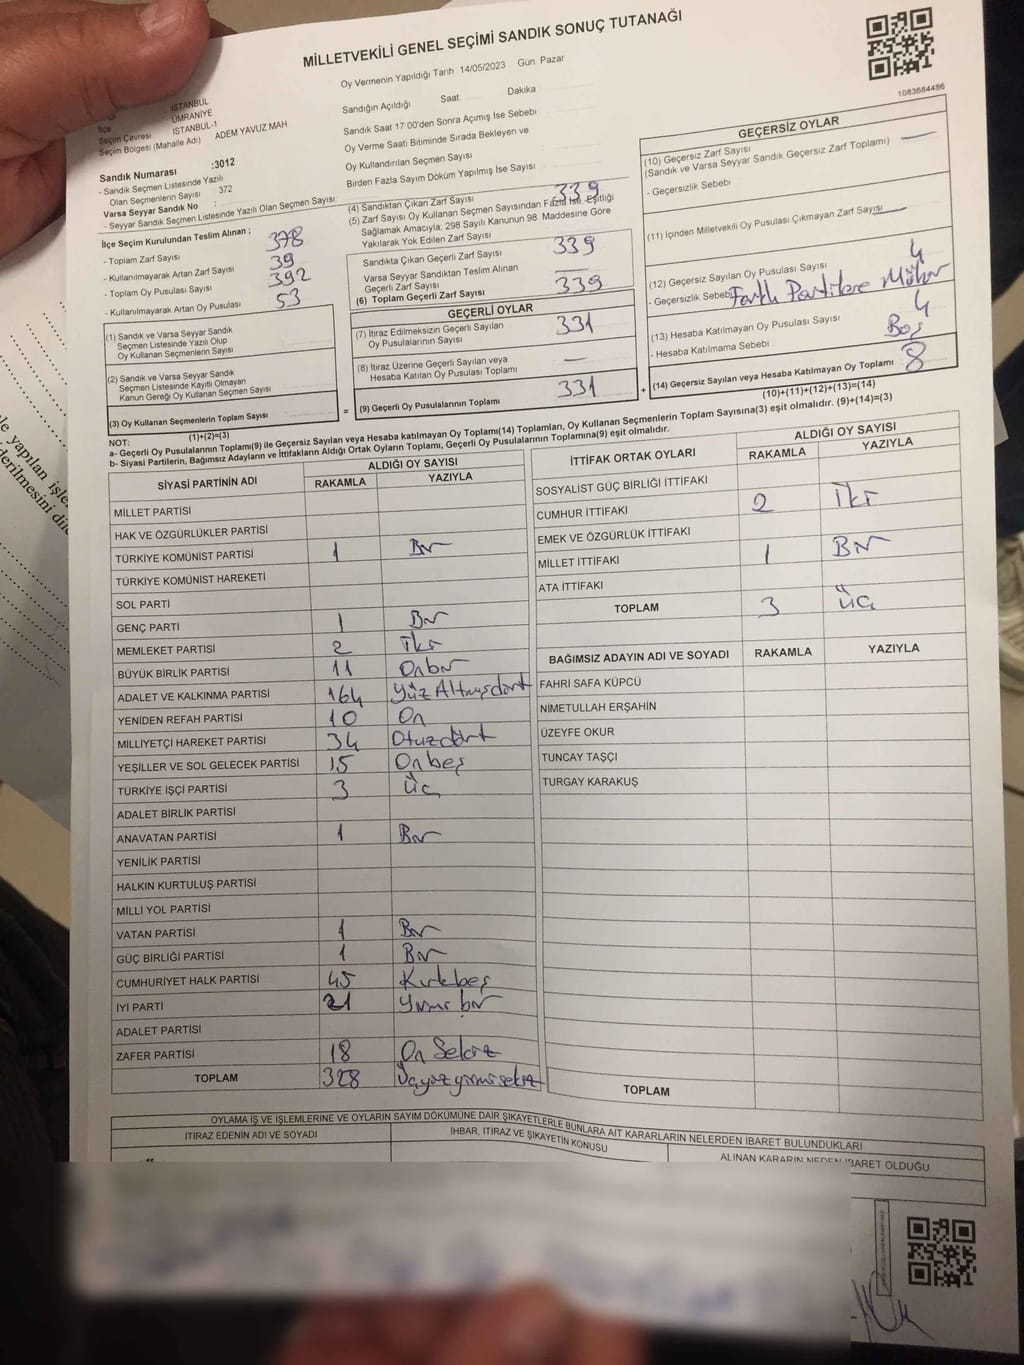 MİLLETVEKİLİ GENEL SEÇİMİ SANDIK SONUÇ TUTANAĞI
Oy Vermenin Yapıldığı Tarih :14/05/2023 Gün Pazar
1083684486
İSTANBUL
İlçe ÜMRANİYE
Seçim Çevresi İSTANBUL-1
Seçim Bölgesi (Mahalle Adı) ADEM YAVUZ MAH
Sandık Numarası :3012
- Sandık Seçmen Listesinde Yazılı
Olan Seçmenlerin Sayısı 372
Varsa Seyyar Sandık No :
- Seyyar Sandık Seçmen Listesinde Yazılı Olan Seçmen Sayısı :
İlçe Seçim Kurulundan Teslim Alınan ;
- Toplam Zarf Sayısı 378
- Kullanılmayarak Artan Zarf Sayısı 39
- Toplam Oy Pusulası Sayısı 392
- Kullanılmayarak Artan Oy Pusulası 53
(1) Sandık ve Varsa Seyyar Sandık
Seçmen Listesinde Yazılı Olup
Oy Kullanan Seçmenlerin Sayısı
(2) Sandık ve Varsa Seyyar Sandık
Seçmen Listesinde Kayıtlı Olmayan
Kanun Gereği Oy Kullanan Seçmen Sayısı
(3) Oy Kullanan Seçmenlerin Toplam Sayısı
(1)+(2)=(3)
Sandığın Açıldığı Saat: Dakika
Sandık Saat 17:00'den Sonra Açımış İse Sebebi
Oy Verme Saati Bitiminde Sırada Bekleyen ve
Oy Kullandırılan Seçmen Sayısı
Birden Fazla Sayım Döküm Yapılmış İse Sayısı
(4) Sandıktan Çıkan Zarf Sayısı 339
(5) Zarf Sayısı Oy Kullanan Seçmen Sayısından Fazla İse, Eşitliği
Sağlamak Amacıyla; 298 Sayılı Kanunun 98. Maddesine Göre
Yakılarak Yok Edilen Zarf Sayısı
Sandıkta Çıkan Geçerli Zarf Sayısı 339
Varsa Seyyar Sandıktan Teslim Alınan
Geçerli Zarf Sayısı —
(6) Toplam Geçerli Zarf Sayısı 339
GEÇERLİ OYLAR
(7) İtiraz Edilmeksizin Geçerli Sayılan
Oy Pusulalarının Sayısı 331
(8) İtiraz Üzerine Geçerli Sayılan veya
Hesaba Katılan Oy Pusulası Toplamı —
= (9) Geçerli Oy Pusulalarının Toplamı 331 +
GEÇERSİZ OYLAR
(10) Geçersiz Zarf Sayısı —
(Sandık ve Varsa Seyyar Sandık Geçersiz Zarf Toplamı)
- Geçersizlik Sebebi
(11) İçinden Milletvekili Oy Pusulası Çıkmayan Zarf Sayısı —
(12) Geçersiz Sayılan Oy Pusulası Sayısı 4
- Geçersizlik Sebebi Farklı Partilere Mühür
(13) Hesaba Katılmayan Oy Pusulası Sayısı 4
- Hesaba Katılmama Sebebi Boş
(14) Geçersiz Sayılan veya Hesaba Katılmayan Oy Toplamı 8
(10)+(11)+(12)+(13)=(14)
NOT:
a- Geçerli Oy Pusulaların Toplamı(9) ile Geçersiz Sayılan veya Hesaba katılmayan Oy Toplamı(14) Toplamları, Oy Kullanan Seçmenlerin Toplam Sayısına(3) eşit olmalıdır. (9)+(14)=(3)
b- Siyasi Partilerin, Bağımsız Adayların ve İttifakların Aldığı Ortak Oyların Toplamı, Geçerli Oy Pusulalarının Toplamına(9) eşit olmalıdır.
SİYASİ PARTİNİN ADI ALDIĞI OY SAYISI
RAKAMLA YAZIYLA
MİLLET PARTİSİ
HAK VE ÖZGÜRLÜKLER PARTİSİ
TÜRKİYE KOMÜNİST PARTİSİ 1 Bir
TÜRKİYE KOMÜNİST HAREKETİ
SOL PARTİ
GENÇ PARTİ 1 Bir
MEMLEKET PARTİSİ 2 İki
BÜYÜK BİRLİK PARTİSİ 11 Onbir
ADALET VE KALKINMA PARTİSİ 164 Yüz Altmışdört
YENİDEN REFAH PARTİSİ 10 On
MİLLİYETÇİ HAREKET PARTİSİ 34 Otuzdört
YEŞİLLER VE SOL GELECEK PARTİSİ 15 Onbeş
TÜRKİYE İŞÇİ PARTİSİ 3 Üç
ADALET BİRLİK PARTİSİ
ANAVATAN PARTİSİ 1 Bir
YENİLİK PARTİSİ
HALKIN KURTULUŞ PARTİSİ
MİLLİ YOL PARTİSİ
VATAN PARTİSİ 1 Bir
GÜÇ BİRLİĞİ PARTİSİ 1 Bir
CUMHURİYET HALK PARTİSİ 45 Kırkbeş
İYİ PARTİ 21 Yirmi bir
ADALET PARTİSİ
ZAFER PARTİSİ 18 On Sekiz
TOPLAM 328 Üçyüzyirmisekiz
İTTİFAK ORTAK OYLARI ALDIĞI OY SAYISI
RAKAMLA YAZIYLA
SOSYALİST GÜÇ BİRLİĞİ İTTİFAKI
CUMHUR İTTİFAKI 2 İki
EMEK VE ÖZGÜRLÜK İTTİFAKI
MİLLET İTTİFAKI 1 Bir
ATA İTTİFAKI
TOPLAM 3 Üç
BAĞIMSIZ ADAYIN ADI VE SOYADI RAKAMLA YAZIYLA
FAHRİ SAFA KÜPCÜ
NİMETULLAH ERŞAHİN
ÜZEYFE OKUR
TUNCAY TAŞÇI
TURGAY KARAKUŞ
TOPLAM
OYLAMA İŞ VE İŞLEMLERİNE VE OYLARIN SAYIM DÖKÜMÜNE DAİR ŞİKAYETLERLE BUNLARA AİT KARARLARIN NELERDEN İBARET BULUNDUKLARI
İTİRAZ EDENİN ADI VE SOYADI İHBAR, İTİRAZ VE ŞİKAYETİN KONUSU ALINAN KARARIN NEDEN İBARET OLDUĞU
yapılan işle